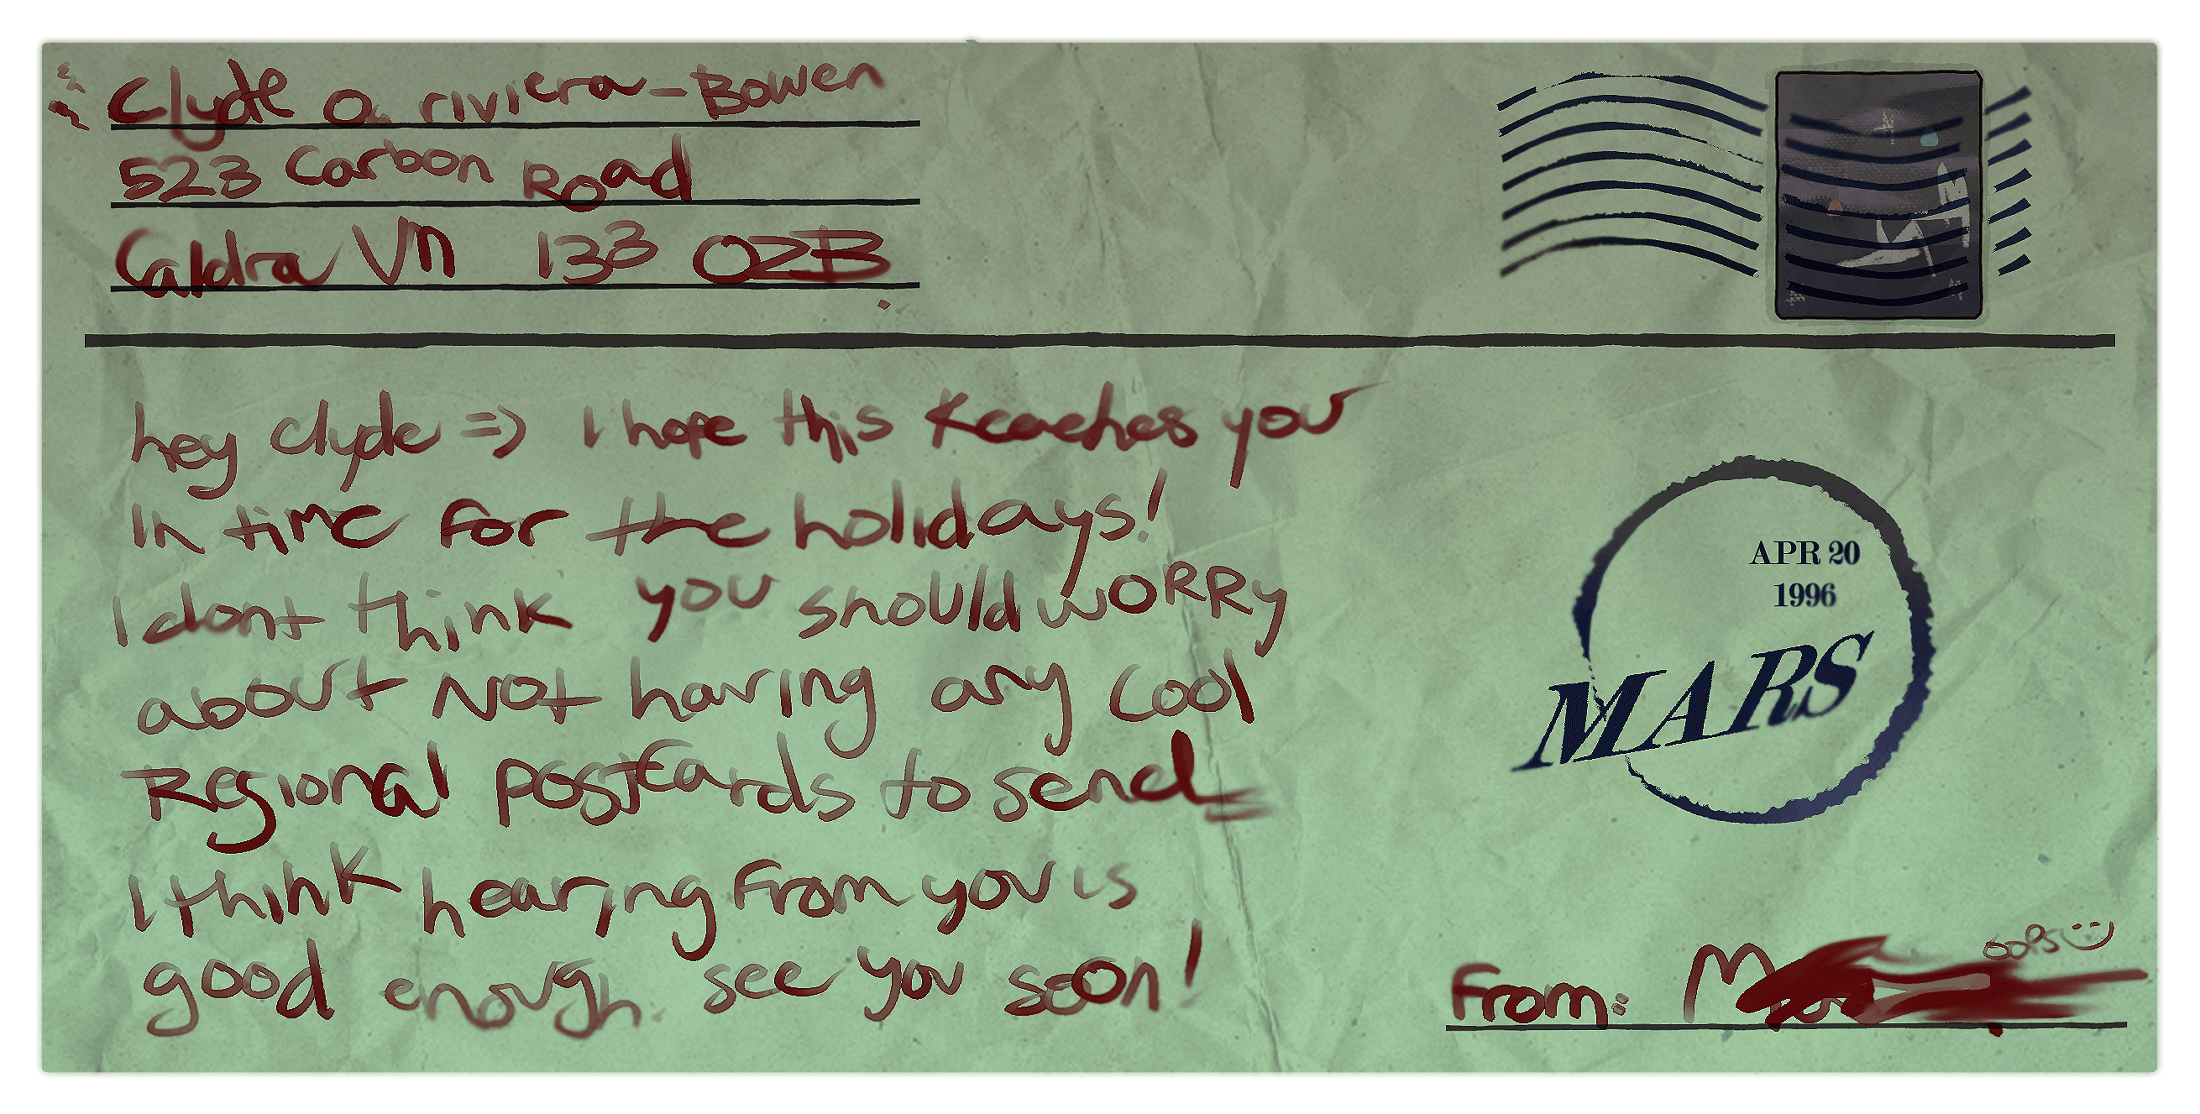 Clyde O. riviera-Bowen
523 Carbon Road
Caldra VN 133 OZB
hey clyde =) I hope this reaches you
in time for the holidays!
I dont think you should woRRy
about Not having any cool
Regional postcards to send
I think hearing From you is
good enough. see you soon!
APR 20
1996
MARS
oops
From: